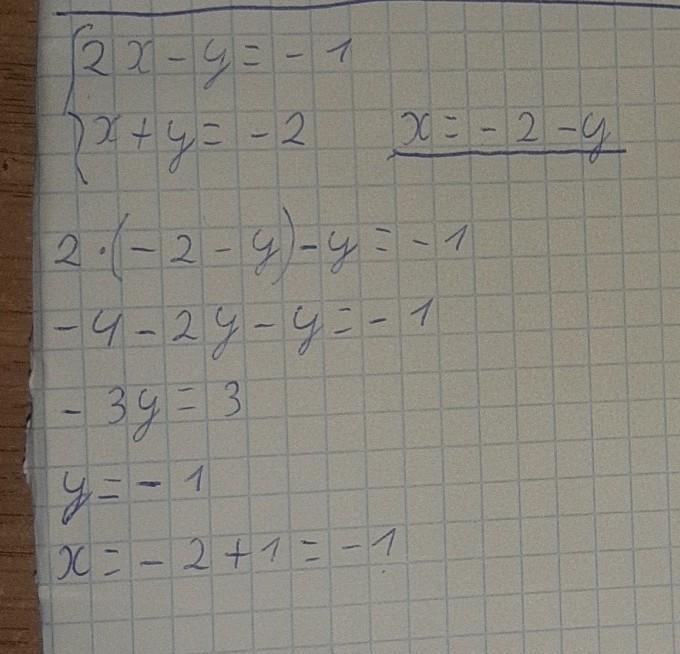 2x - y = - 1
x + y = - 2 x = - 2 - y
2 · (- 2 - y) - y = - 1
- 4 - 2y - y = - 1
- 3y = 3
y = - 1
x = - 2 + 1 = - 1